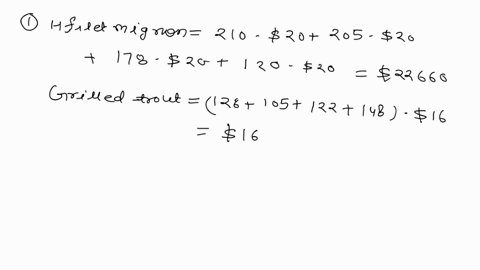 ① Hfilet mignon = 210 · $20 + 205 · $20
+ 178 · $20 + 120 · $20 = $22660
Grilled trout = (128 + 105 + 122 + 148) · $16
= $16